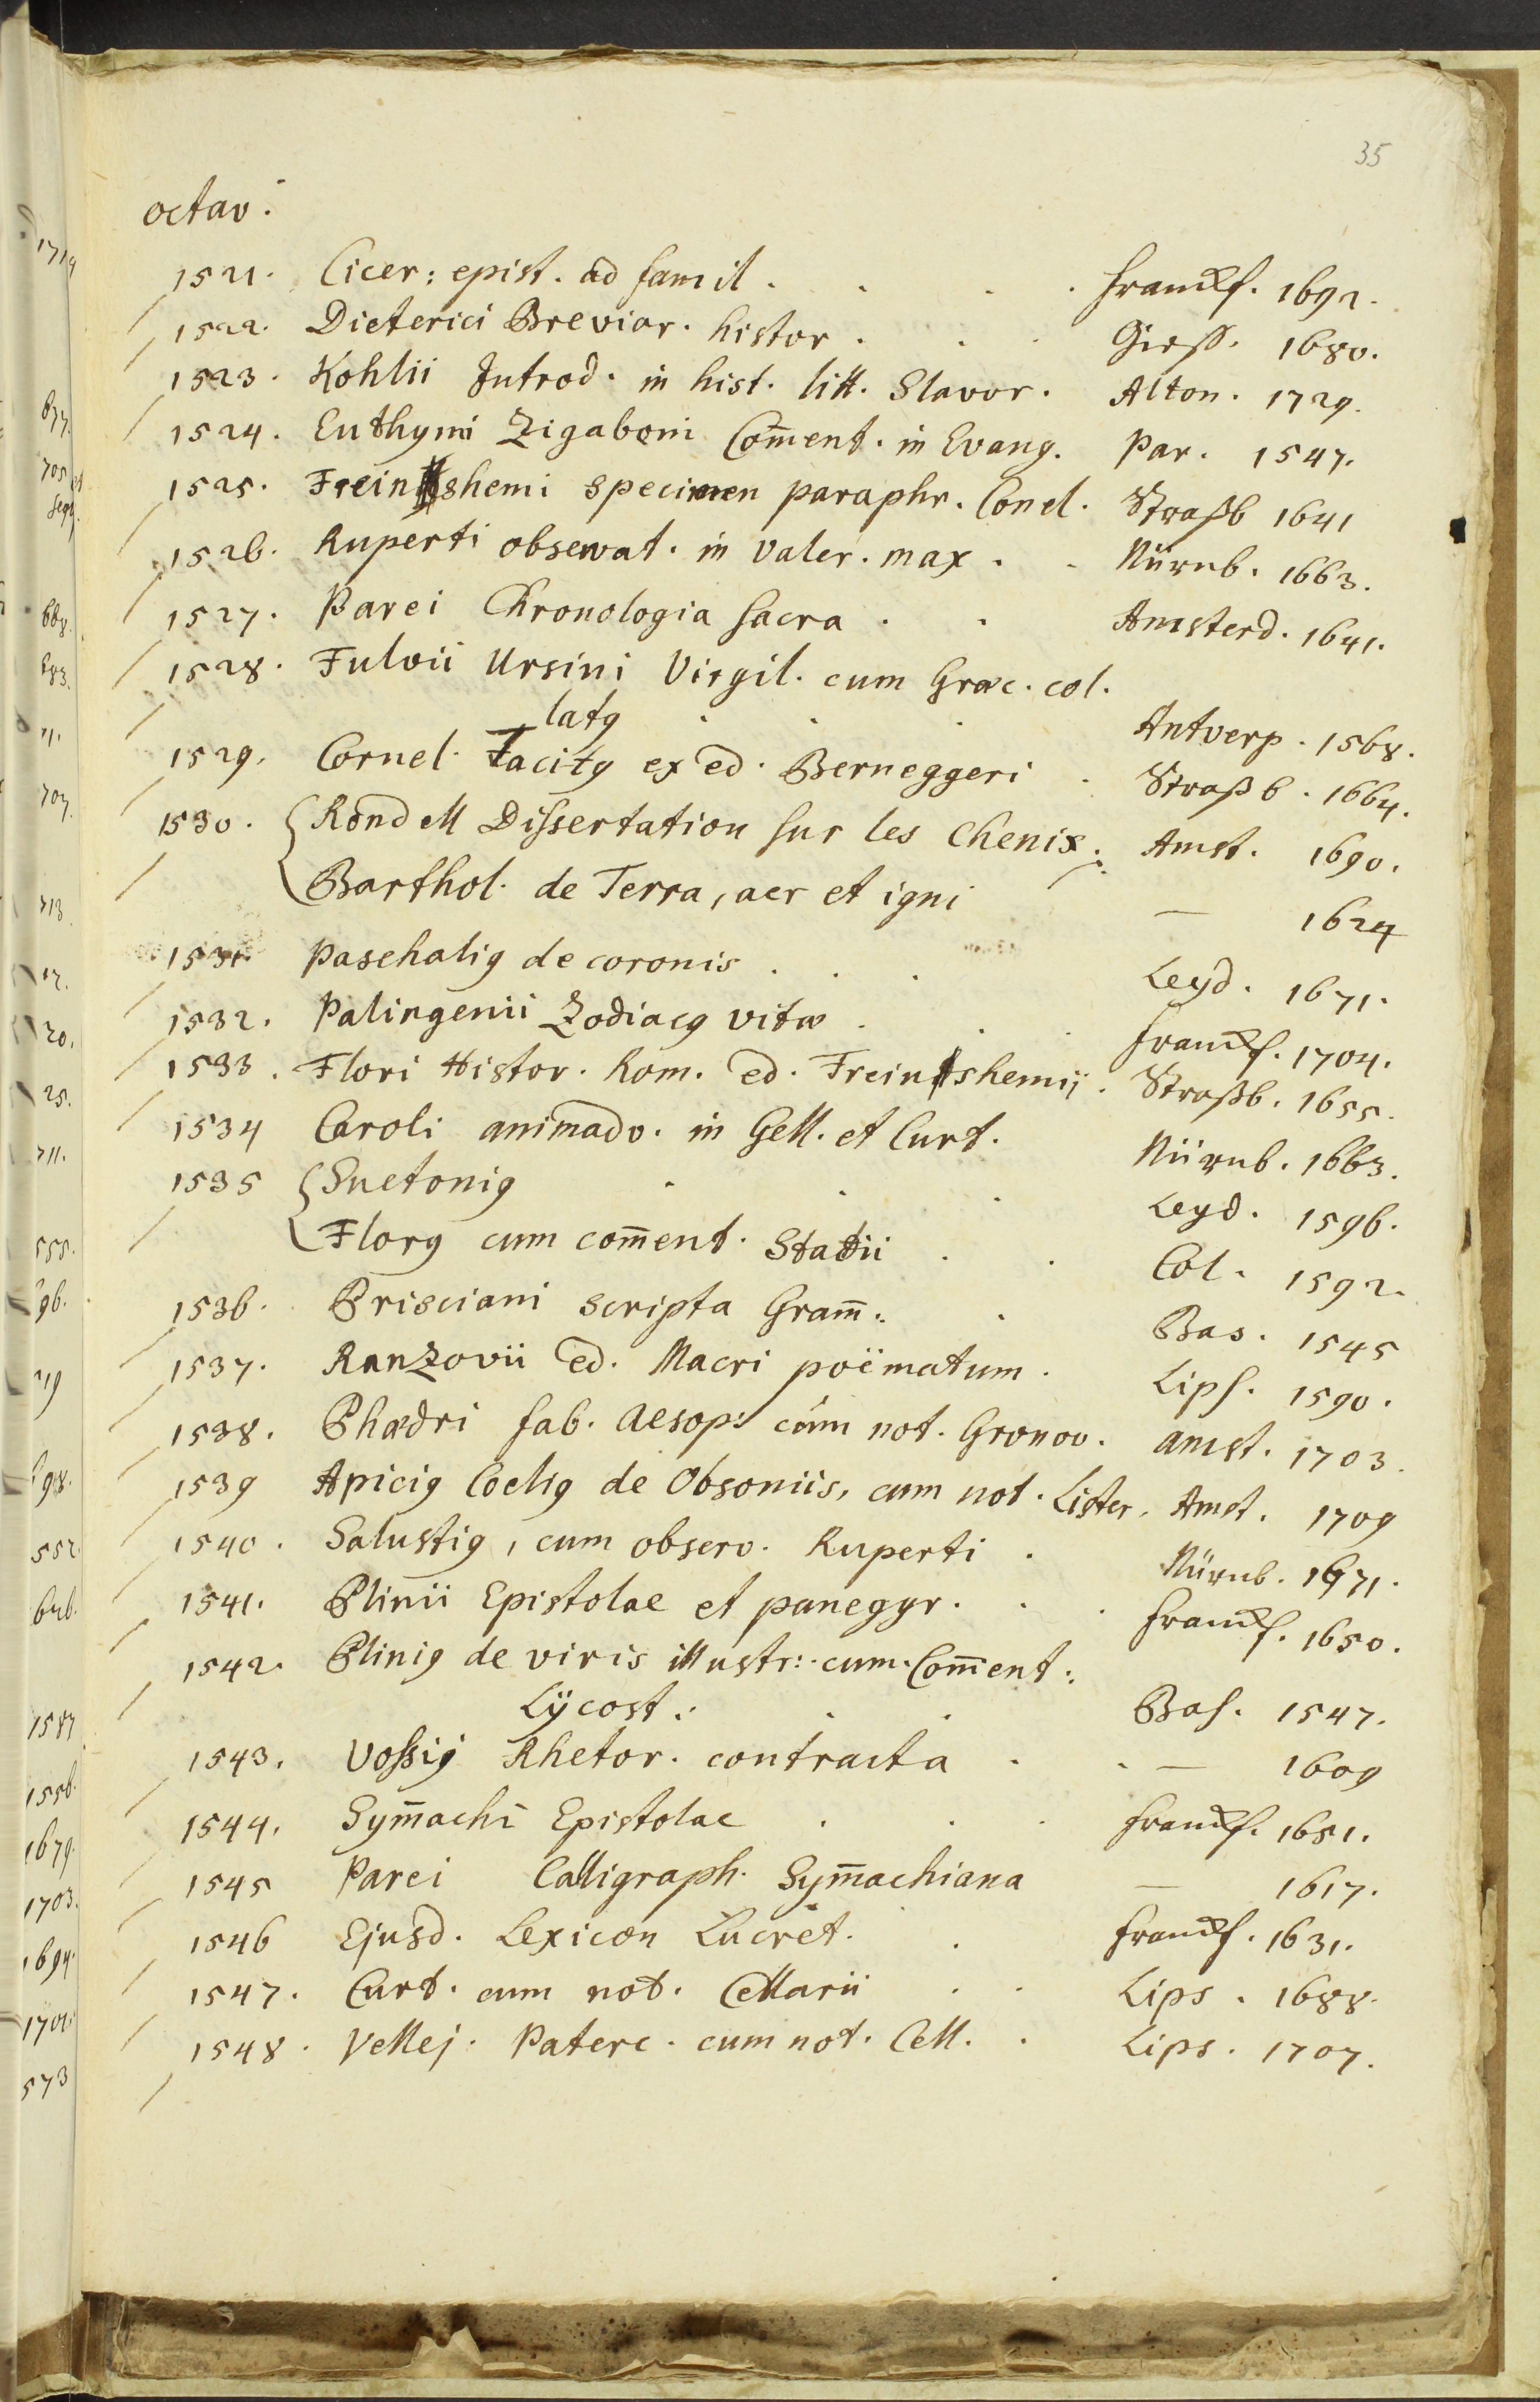 35
octav:
1521. Cicer: epist. ad famil. . . . Franckf. 1692.
1522. Dieterici Breviar. histor. . . Giess. 1680.
1523. Kohlii Introd. in hist. litt. Slavor. Alton. 1729.
1524. Euthymi Zigaboni Com̄ent. in Evang. Par. 1547.
1525. Freinshemi specimen paraphr. Conel. Straßb 1641
1526. Ruperti observat. in Valer. max. . Nürnb. 1663.
1527. Parei Chronologia sacra . . Amsterd. 1641.
1528. Fulvii Ursini Virgil. cum Græc. col.
latq . . . Antverp. 1568.
1529. Cornel. Tacitq ex ed. Berneggeri . Straßb. 1664.
1530. Rondell Dissertation sur les Chenix. Amst. 1690.
Barthol. de Terra, aer et igni — 1624
1531. Paschaliq de coronis . . . Leyd. 1671.
1532. Palingenii Zodiacq vitæ . . . Franckf. 1704.
1533. Flori Histor. Rom. ed. Freinshemii. Straßb. 1655.
1534 Caroli animadv. in Gell. et Curt. Nürnb. 1663.
1535 Suetoniq . . . Leyd. 1596.
Florq cum com̄ent. Statii . . Col. 1592.
1536. Prisciani scripta Gram̄:. . Bas. 1545
1537. Ranzovii ed. Macri poëmatum. Lips. 1590.
1538. Phædri fab. Aesop: cum not. Gronov. Amst. 1703.
1539 Apiciq Coeliq de Obsoniis, cum not. Lister. Amst. 1709
1540. Salustiq, cum observ. Ruperti . Nürnb. 1671.
1541. Plinii Epistolae et panegyr. . . Franckf. 1650.
1542. Pliniq de viris illustr: cum Com̄ent:.
Lÿcost:. . . Bas. 1547.
1543. Vossiq Rhetor. contracta . . — 1609
1544. Sym̄achi Epistolae . . . Franckf. 1651.
1545 Parei Calligraph. Sym̄achiana — 1617.
1546 Ejusd. Lexicon Lucret. . Franckf. 1631.
1547. Curt. cum not. Cellarii . . Lips. 1688.
1548. Vellej. Paterc. cum not. Cell. . Lips. 1707.